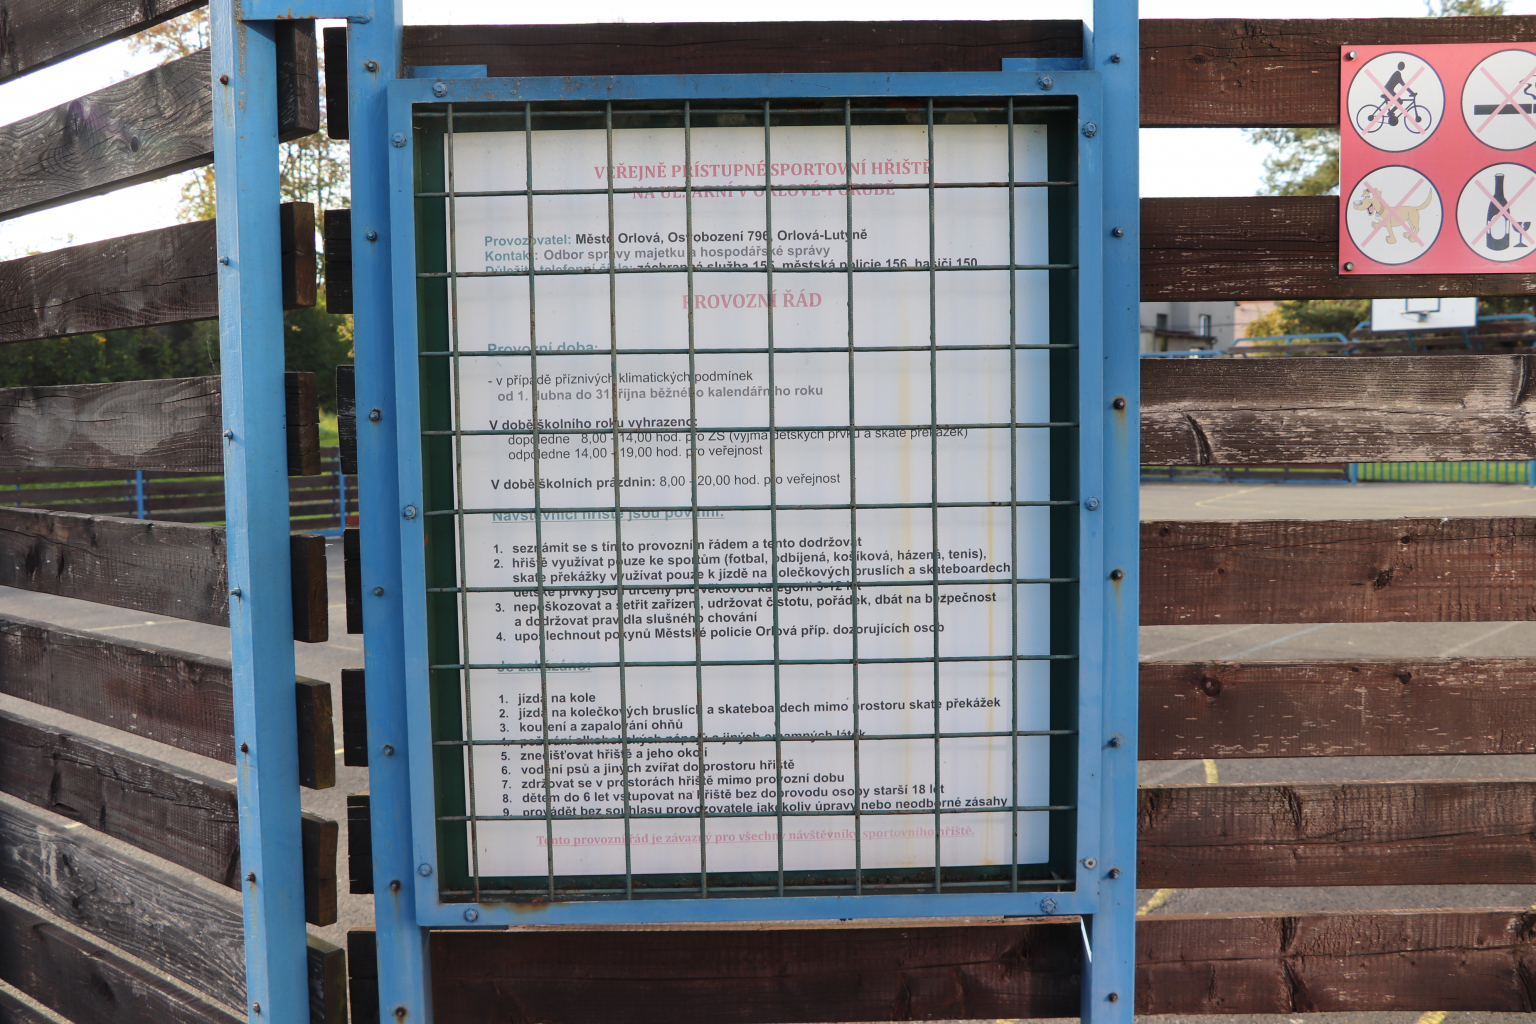 VEŘEJNĚ PŘÍSTUPNÉ SPORTOVNÍ HŘIŠTĚ
NA UL. JARNÍ V ORLOVÉ-PORUBĚ
Provozovatel: Město Orlová, Osvobození 796, Orlová-Lutyně
Kontakt: Odbor správy majetku a hospodářské správy
Důležitá telefonní čísla: záchranná služba 155, městská policie 156, hasiči 150
PROVOZNÍ ŘÁD
Provozní doba:
- v případě příznivých klimatických podmínek
od 1. dubna do 31. října běžného kalendářního roku
V době školního roku vyhrazeno:
dopoledne 8,00 - 14,00 hod. pro ZŠ (vyjma dětských prvků a skate překážek)
odpoledne 14,00 - 19,00 hod. pro veřejnost
V době školních prázdnin: 8,00 - 20,00 hod. pro veřejnost
Návštěvníci hřiště jsou povinni:
1. seznámit se s tímto provozním řádem a tento dodržovat
2. hřiště využívat pouze ke sportům (fotbal, odbíjená, košíková, házená, tenis),
skate překážky využívat pouze k jízdě na kolečkových bruslích a skateboardech
dětské prvky jsou určeny pro věkovou kategorii 3-12 let
3. nepoškozovat a šetřit zařízení, udržovat čistotu, pořádek, dbát na bezpečnost
a dodržovat pravidla slušného chování
4. uposlechnout pokynů Městské policie Orlová příp. dozorujících osob
Je zakázáno:
1. jízda na kole
2. jízda na kolečkových bruslích a skateboardech mimo prostoru skate překážek
3. kouření a zapalování ohňů
4. požívání alkoholických nápojů a jiných omamných látek
5. znečišťovat hřiště a jeho okolí
6. vodění psů a jiných zvířat do prostoru hřiště
7. zdržovat se v prostorách hřiště mimo provozní dobu
8. dětem do 6 let vstupovat na hřiště bez doprovodu osoby starší 18 let
9. provádět bez souhlasu provozovatele jakékoliv úpravy nebo neodborné zásahy
Tento provozní řád je závazný pro všechny návštěvníky sportovního hřiště.